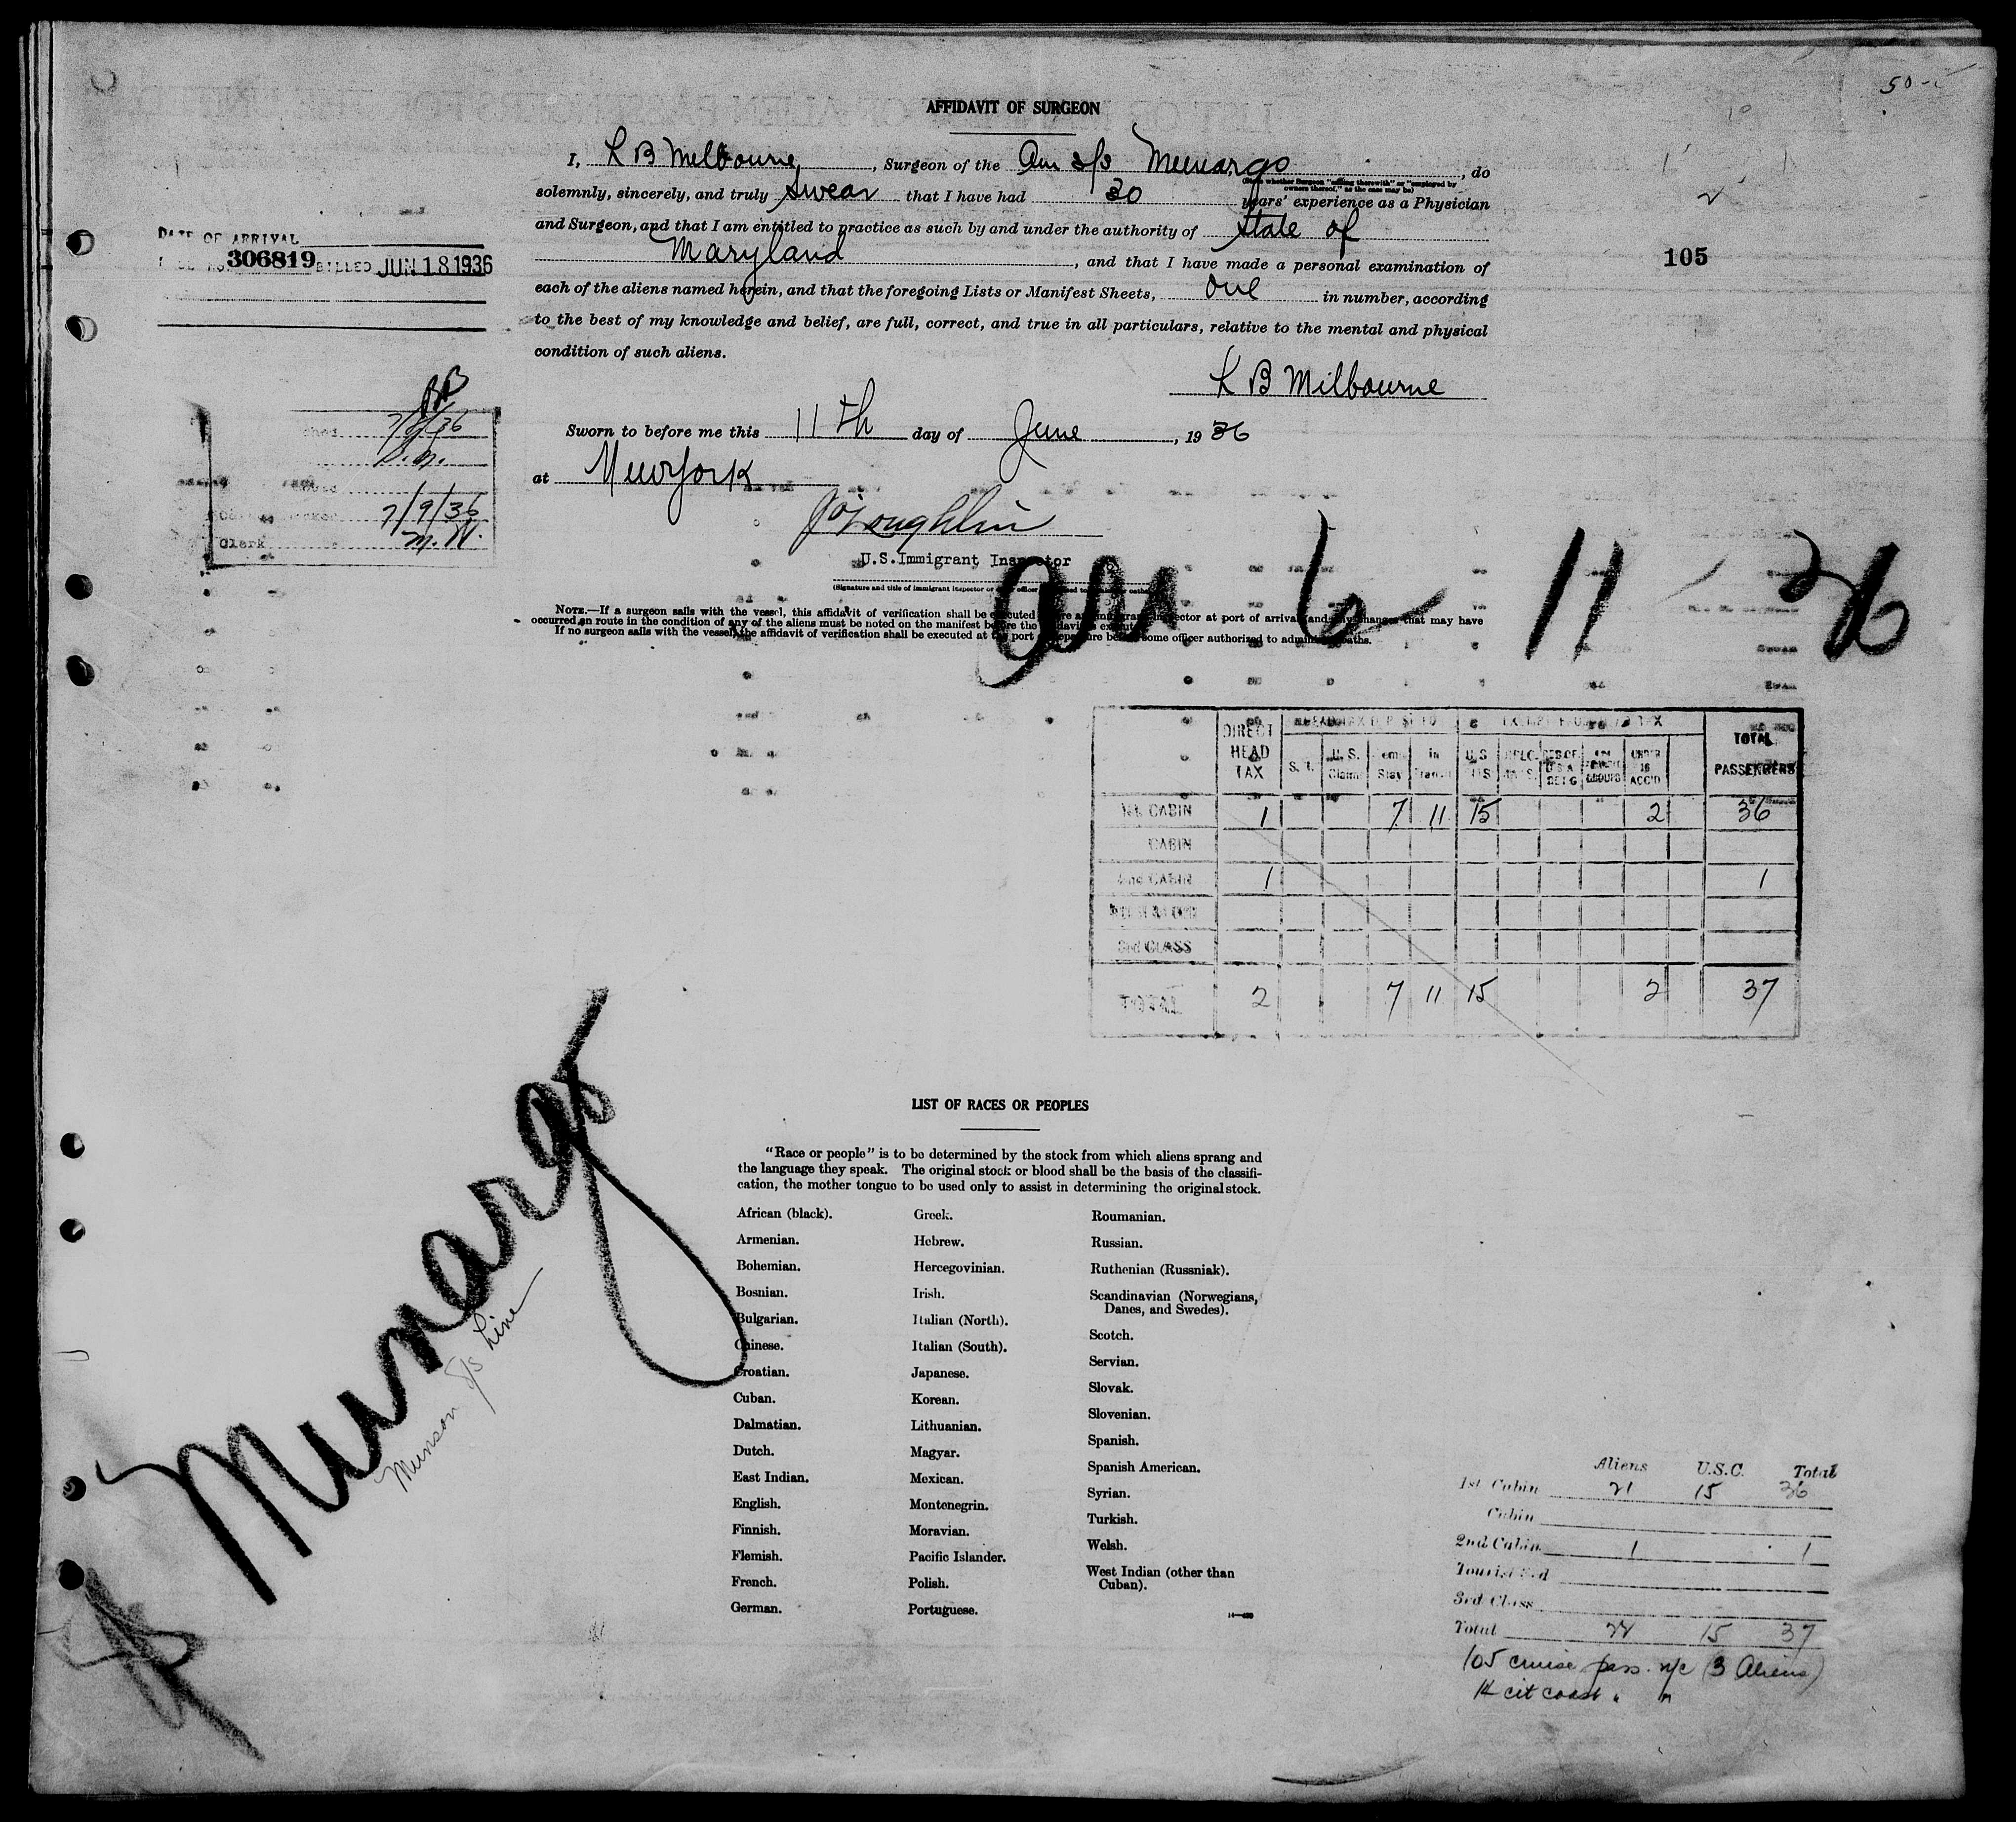 50-
AFFIDAVIT OF SURGEON
I, L B Melbourne, Surgeon of the Am s/s Munargo, do
(State whether Surgeon "sailing therewith" or "employed by owners thereof," as the case may be)
solemnly, sincerely, and truly swear that I have had 30 years' experience as a Physician
and Surgeon, and that I am entitled to practice as such by and under the authority of State of
Maryland, and that I have made a personal examination of
each of the aliens named herein, and that the foregoing Lists or Manifest Sheets, one in number, according
to the best of my knowledge and belief, are full, correct, and true in all particulars, relative to the mental and physical
condition of such aliens.
L B Milbourne
Sworn to before me this 11th day of June, 1936
at New York
J O'Loughlin
U.S.Immigrant Inspector
NOTE.—If a surgeon sails with the vessel, this affidavit of verification shall be executed before an immigrant inspector at port of arrival and any changes that may have
occurred en route in the condition of any of the aliens must be noted on the manifest before the affidavit is executed.
If no surgeon sails with the vessel, the affidavit of verification shall be executed at the port of departure before some officer authorized to administer oaths.
DATE OF ARRIVAL
306819 BILLED JUN 18 1936
105
7/8/36
7/9/36
Clerk M.W.
arr 6-11-36
DIRECT HEAD TAX S.T. U.S. Claim Stay in Transit U.S. UNDER 16 ACC'D TOTAL PASSENGERS
1st CABIN 1 7 11 15 2 36
CABIN
2nd CABIN 1 1
3rd CLASS
TOTAL 2 7 11 15 2 37
Munargo
Munson S/S Line
LIST OF RACES OR PEOPLES
"Race or people" is to be determined by the stock from which aliens sprang and
the language they speak. The original stock or blood shall be the basis of the classifi-
cation, the mother tongue to be used only to assist in determining the original stock.
African (black).
Armenian.
Bohemian.
Bosnian.
Bulgarian.
Chinese.
Croatian.
Cuban.
Dalmatian.
Dutch.
East Indian.
English.
Finnish.
Flemish.
French.
German.
Greek.
Hebrew.
Hercegovinian.
Irish.
Italian (North).
Italian (South).
Japanese.
Korean.
Lithuanian.
Magyar.
Mexican.
Montenegrin.
Moravian.
Pacific Islander.
Polish.
Portuguese.
Roumanian.
Russian.
Ruthenian (Russniak).
Scandinavian (Norwegians,
Danes, and Swedes).
Scotch.
Servian.
Slovak.
Slovenian.
Spanish.
Spanish American.
Syrian.
Turkish.
Welsh.
West Indian (other than
Cuban).
Aliens U.S.C. Total
1st Cabin 21 15 36
Cabin
2nd Cabin 1 1
Tourist 3rd
3rd Class
Total 22 15 37
105 cruise pass. n/c (3 Aliens)
14 cit coast " "